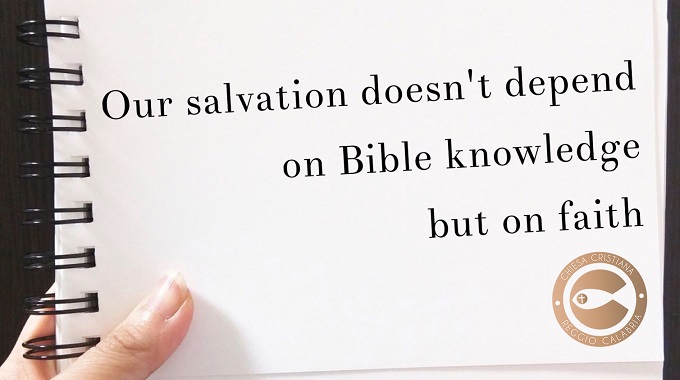 Our salvation doesn't depend
on Bible knowledge
but on faith
CHIESA CRISTIANA
REGGIO CALABRIA